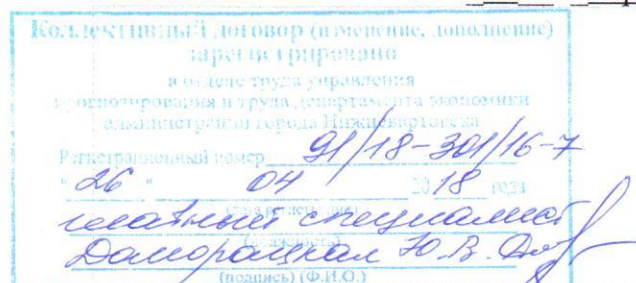 Коллективный договор (изменение, дополнение)
зарегистрировано
в отделе труда управления
прогнозирования и труда департамента экономики
администрации города Нижневартовска
Регистрационный номер 91/18-301/16-7
"26" 04 2018 года
главный специалист
(должность)
Доморацкая Ю.В.
(подпись) (Ф.И.О.)